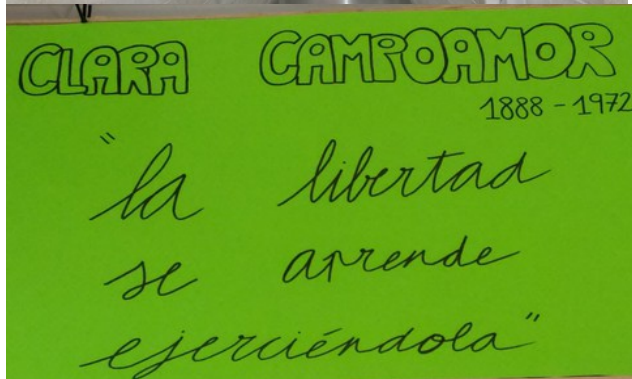 CLARA CAMPOAMOR
1888 - 1972
"la libertad
se aprende
ejerciéndola"